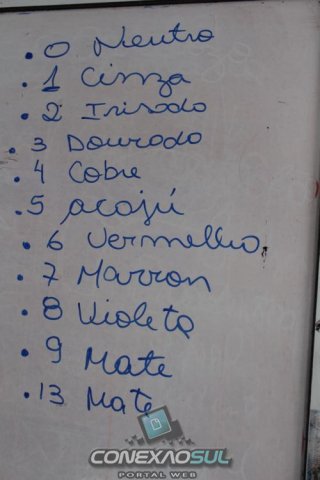 . 0 Neutro
. 1 Cinza
. 2 Irisado
. 3 Dourado
. 4 Cobre
. 5 acajú
. 6 Vermelho
. 7 Marron
. 8 Violeta
. 9 Mate
. 13 Mate
CONEXÃOSUL
PORTAL WEB